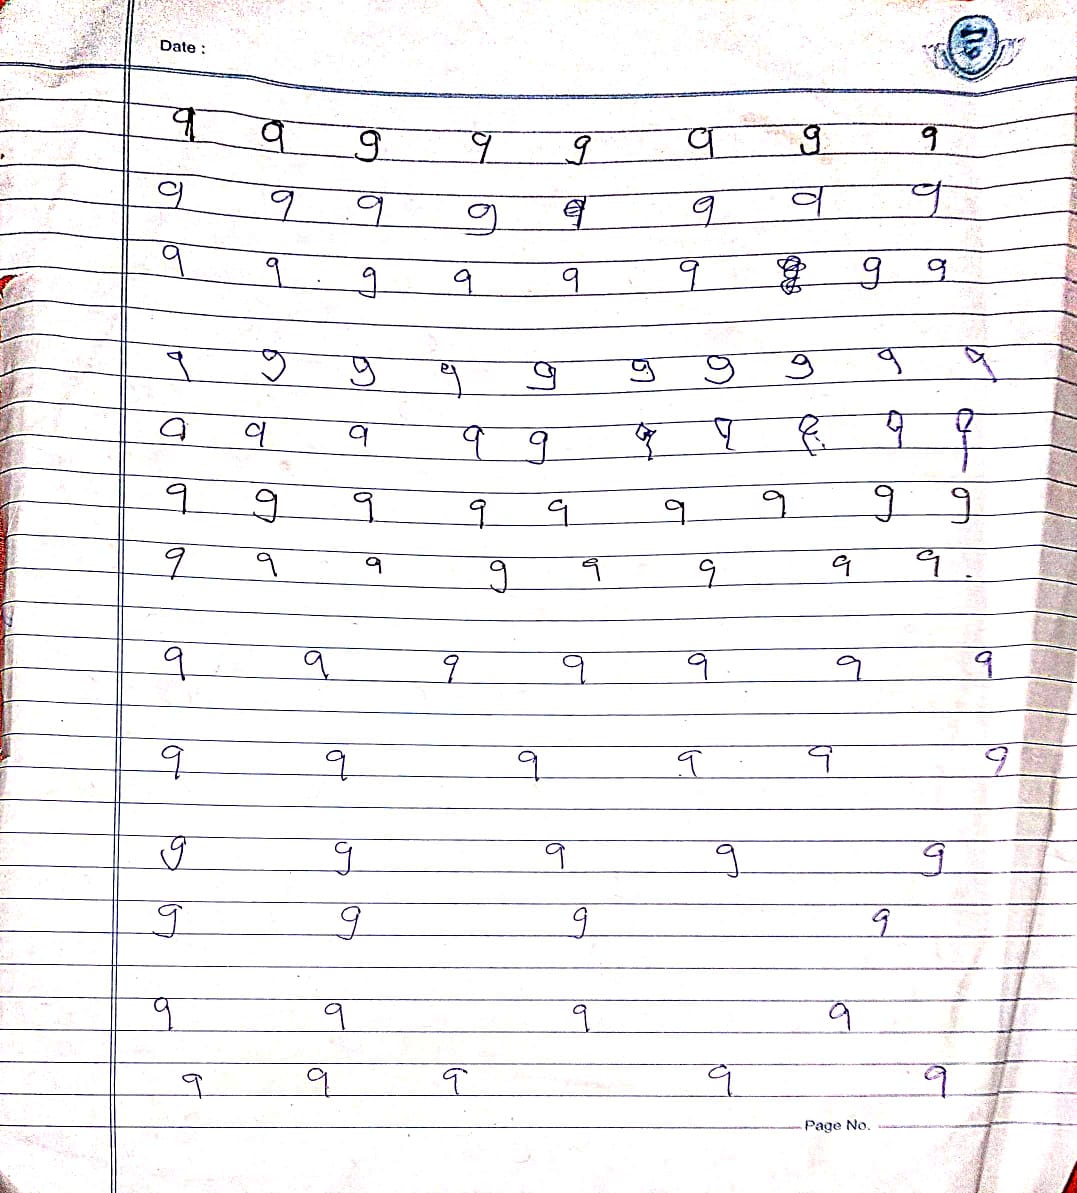 Date :
9 9 9 9 9 9 9 9
9 9 9 9 9 9 9
9 9 9 9 9 9 9 9
9 9 9 9 9 9 9 9 9 9
9 9 9 9 9 9 9 9 9
9 9 9 9 9 9 9 9 9
9 9 9 9 9 9 9 9.
9 9 9 9 9 9 9
9 9 9 9 9 9
9 9 9 9 9
9 9 9 9
9 9 9 9
9 9 9 9 9
Page No.